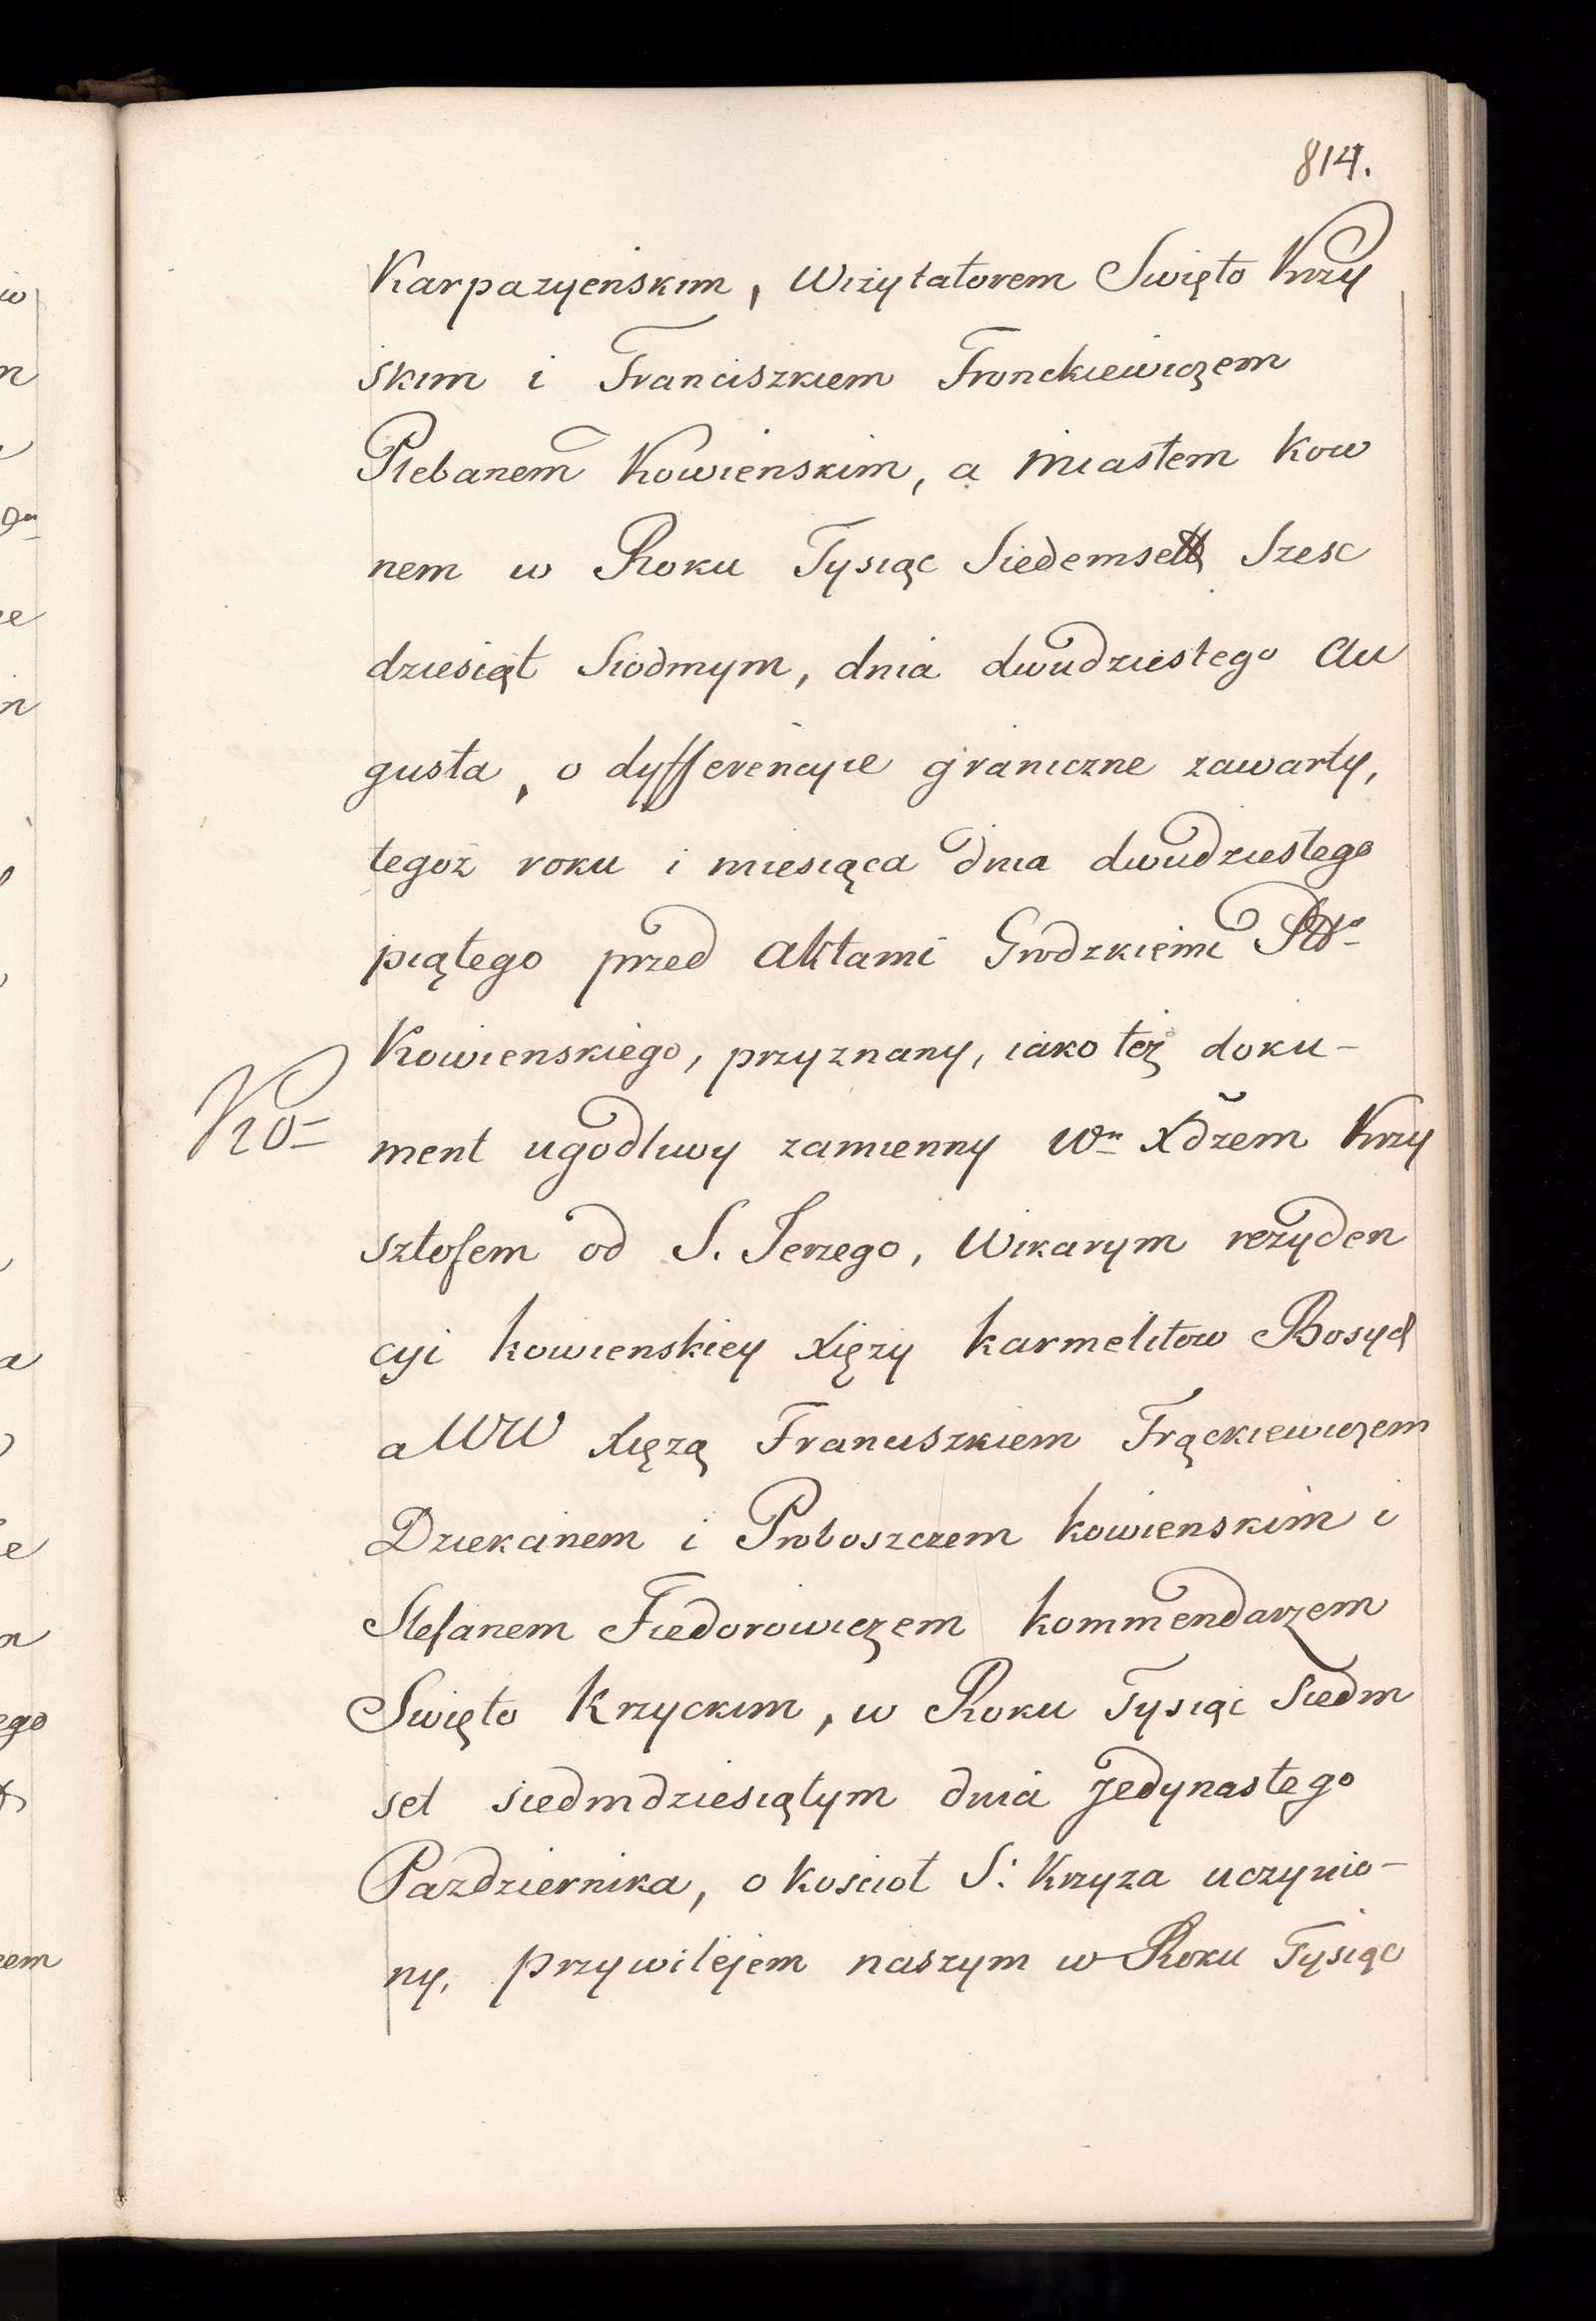 814.
Karpazyeńskim, Wizytatorem Swięto Krzy
skim i Franciszkiem Fronckiewiczem
Plebanem Kowieńskim, a miastem Kow
nem w Roku Tysiąc Siedemset Szesc
dziesiąt Siodmym, dnia dwudziestego Au
gusta, o dyfferencyie graniczne zawarty,
tegoż roku i miesiąca dnia dwudziestego
piątego przed Aktami Grodzkiemi
Kowienskiego, przyznany, iako też doku-
ment ugodliwy zamienny Wm Xdzem Krzy
sztofem od S. Jerzego, Wikarym rezyden
cyi kowienskiey Xięży karmelitow Bosych
a WW Xięzą Franciszkiem Frąckiewiczem
Dziekanem i Proboszczem kowienskim i
Stefanem Fiedorowiczem kommendarzem
Swięto Krzyckim, w Roku Tysiąc Siedm
set siedmdziesiątym dnia Jedynastego
Pazdziernika, o Kosciół S: Krzyza uczynio-
ny, przywilejem naszym w Roku Tysiąc